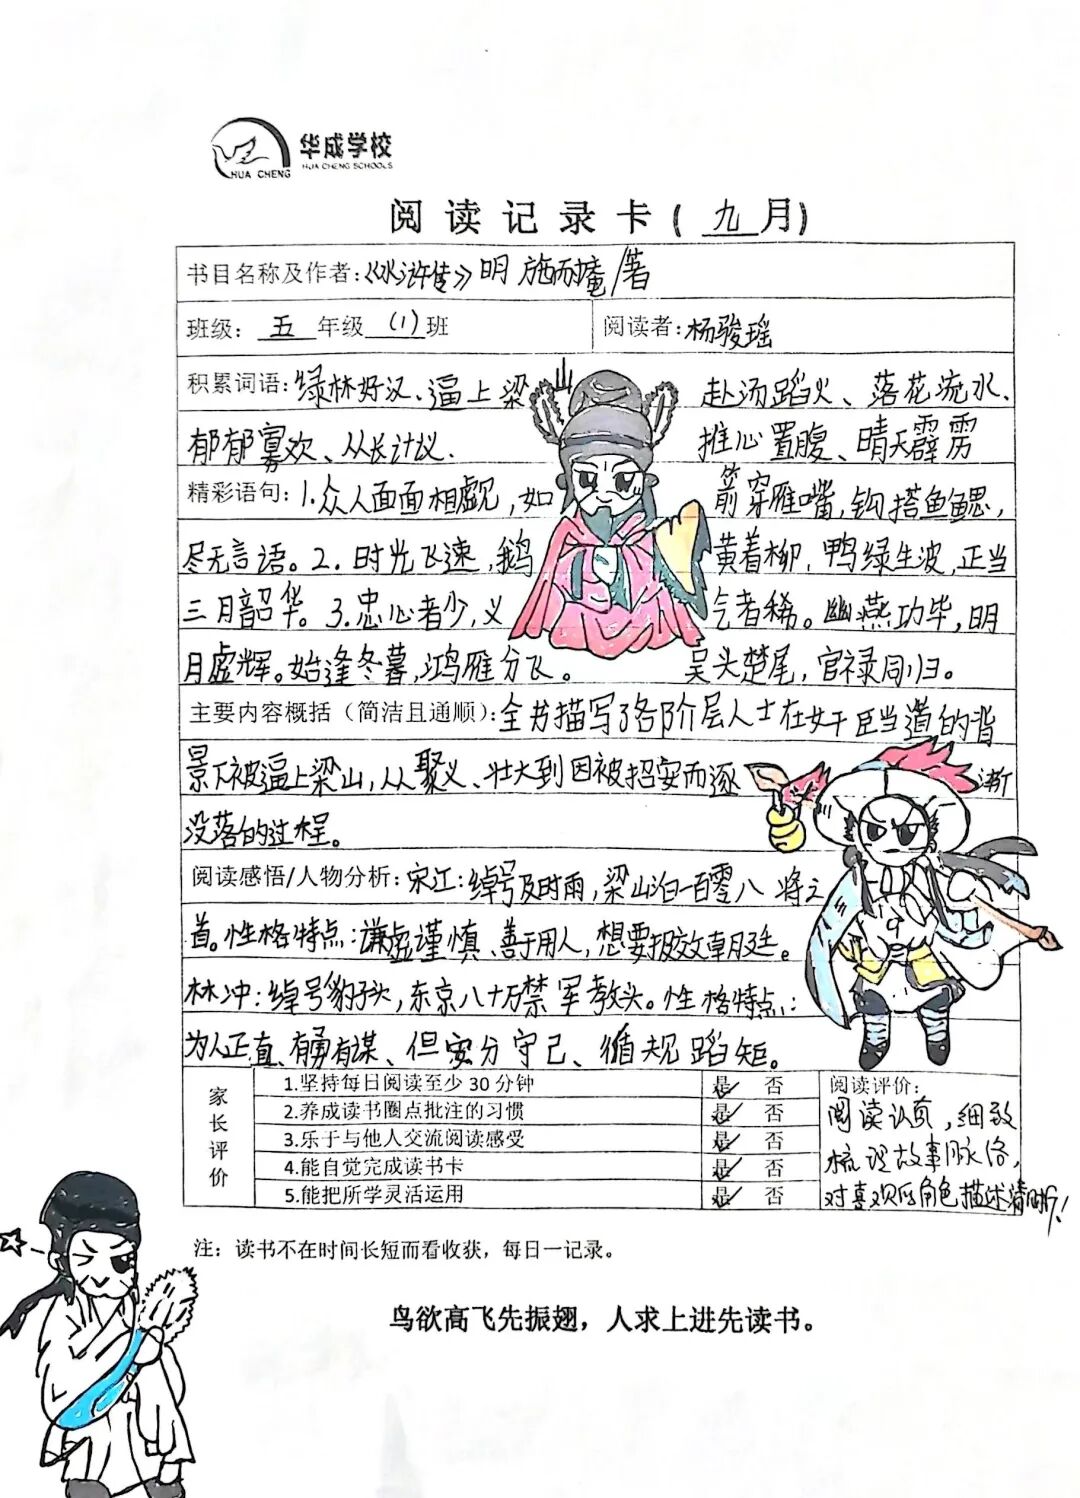 华成学校
HUA CHENG SCHOOLS
HUA CHENG
阅读记录卡(九月)
书目名称及作者:《水浒传》明 施耐庵/著
班级: 五 年级 (1) 班 阅读者:杨骏瑶
积累词语:绿林好汉、逼上梁山 赴汤蹈火、落花流水、
郁郁寡欢、从长计议. 推心置腹、晴天霹雳
精彩语句:1.众人面面相觑,如 箭穿雁嘴,钩搭鱼鳃,
尽无言语。2.时光飞速,鹅 黄着柳,鸭绿生波,正当
三月韶华。3.忠心者少,义 气者稀。幽燕功毕,明
月虚辉。始逢冬暮,鸿雁分飞。 吴头楚尾,官禄同归。
主要内容概括(简洁且通顺):全书描写了各阶层人士在奸臣当道的背
景下被逼上梁山,从聚义、壮大到因被招安而逐 渐
没落的过程。
阅读感悟/人物分析:宋江:绰号及时雨,梁山泊一百零八将之
首。性格特点:谦虚谨慎、善于用人,想要报效朝廷。
林冲:绰号豹子头,东京八十万禁军教头。性格特点:
为人正直、有勇有谋、但安分守己、循规蹈矩。
家长评价
1.坚持每日阅读至少30分钟 是✓ 否
2.养成读书圈点批注的习惯 是✓ 否
3.乐于与他人交流阅读感受 是✓ 否
4.能自觉完成读书卡 是✓ 否
5.能把所学灵活运用 是✓ 否
阅读评价:
阅读认真,细致
梳理故事脉络,
对喜欢的角色描述清晰!
注:读书不在时间长短而看收获,每日一记录。
鸟欲高飞先振翅,人求上进先读书。